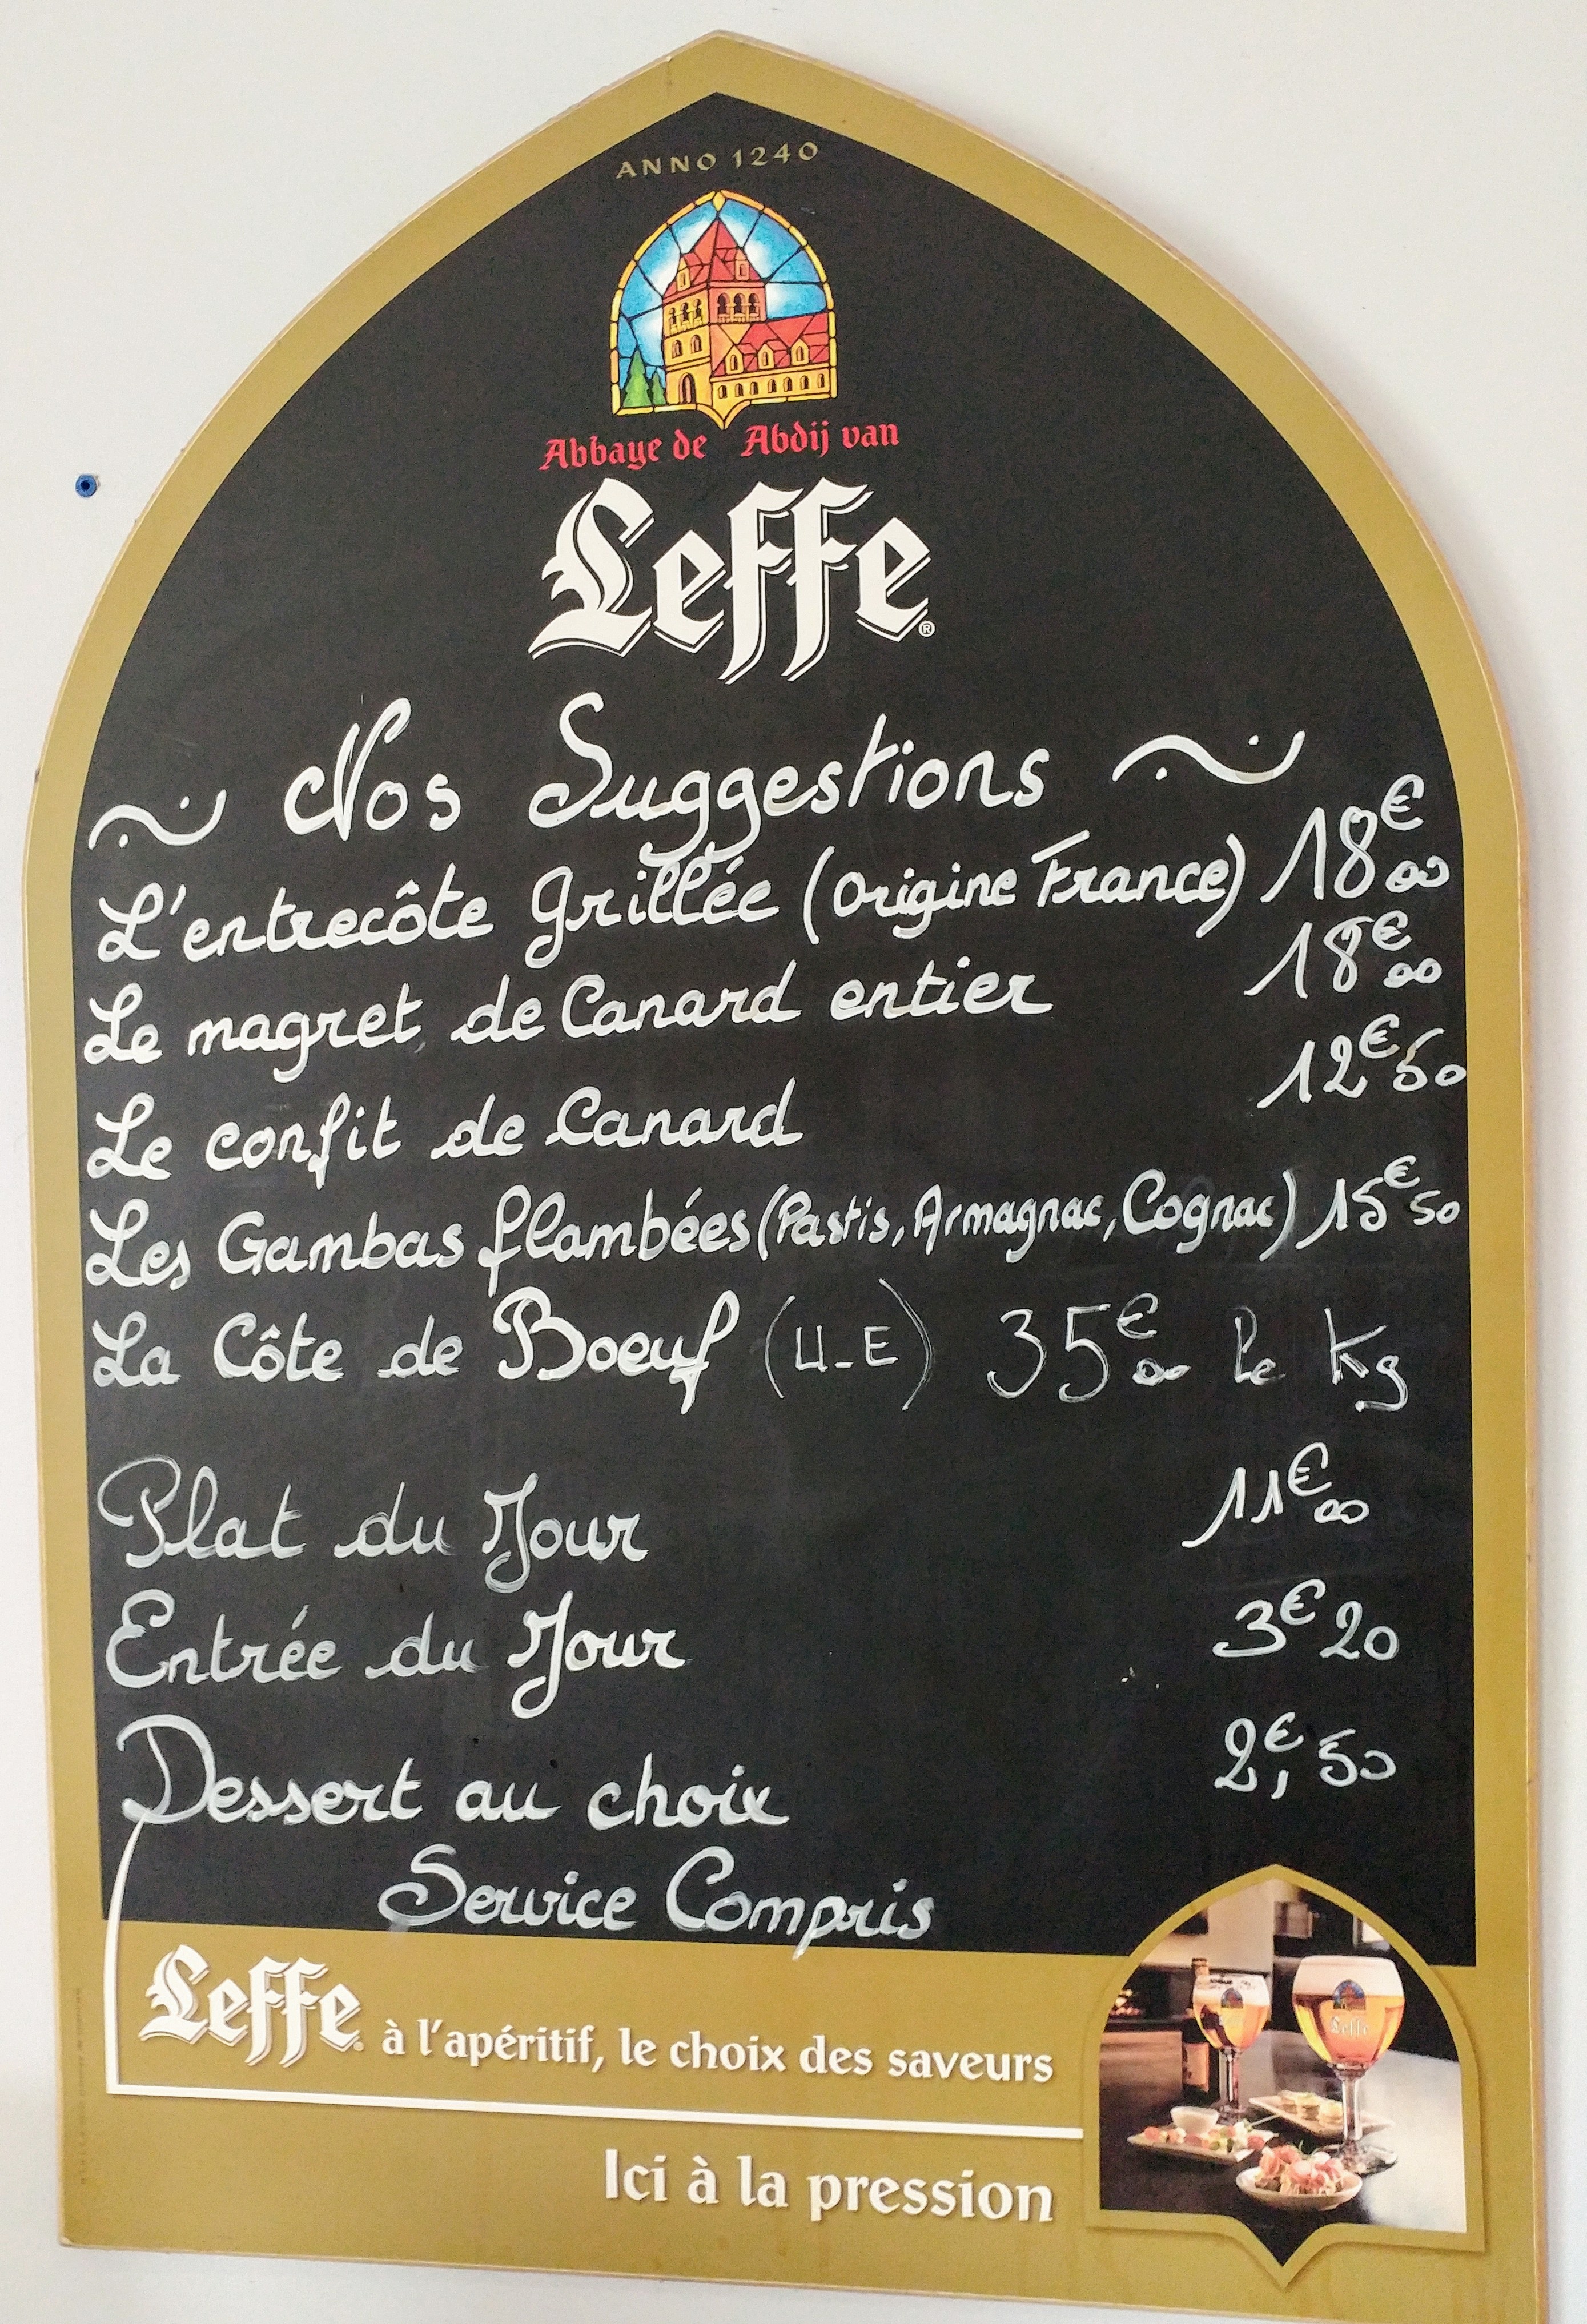 ANNO 1240
Abbaye de Abdij van
Leffe®
Nos Suggestions
L'entrecôte Grillée (Origine France) 18€00
Le magret de Canard entier 18€00
Le confit de Canard 12€50
Les Gambas flambées (Pastis, Armagnac, Cognac) 15€50
La Côte de Boeuf (U-E) 35€00 le Kg
Plat du Jour 11€00
Entrée du Jour 3€20
Dessert au choix 2€,50
Service Compris
Leffe® à l'apéritif, le choix des saveurs
Ici à la pression
Leffe